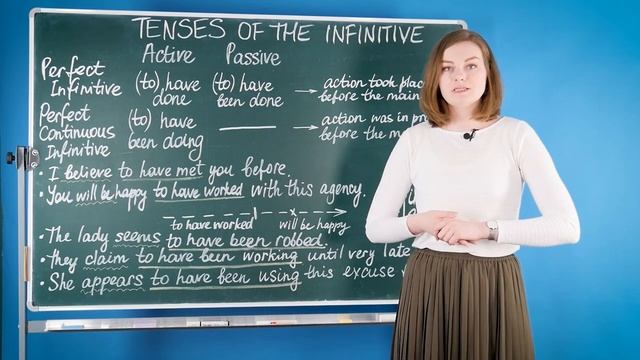 TENSES OF THE INFINITIVE
Active Passive
Perfect Infinitive (to) have done (to) have been done → action took before the main
Perfect Continuous Infinitive (to) have been doing — → action was in before the
• I believe to have met you before.
• You will be happy to have worked with this agency.
to have worked will be happy
• The lady seems to have been robbed.
• They claim to have been working until very late
• She appears to have been using this excuse